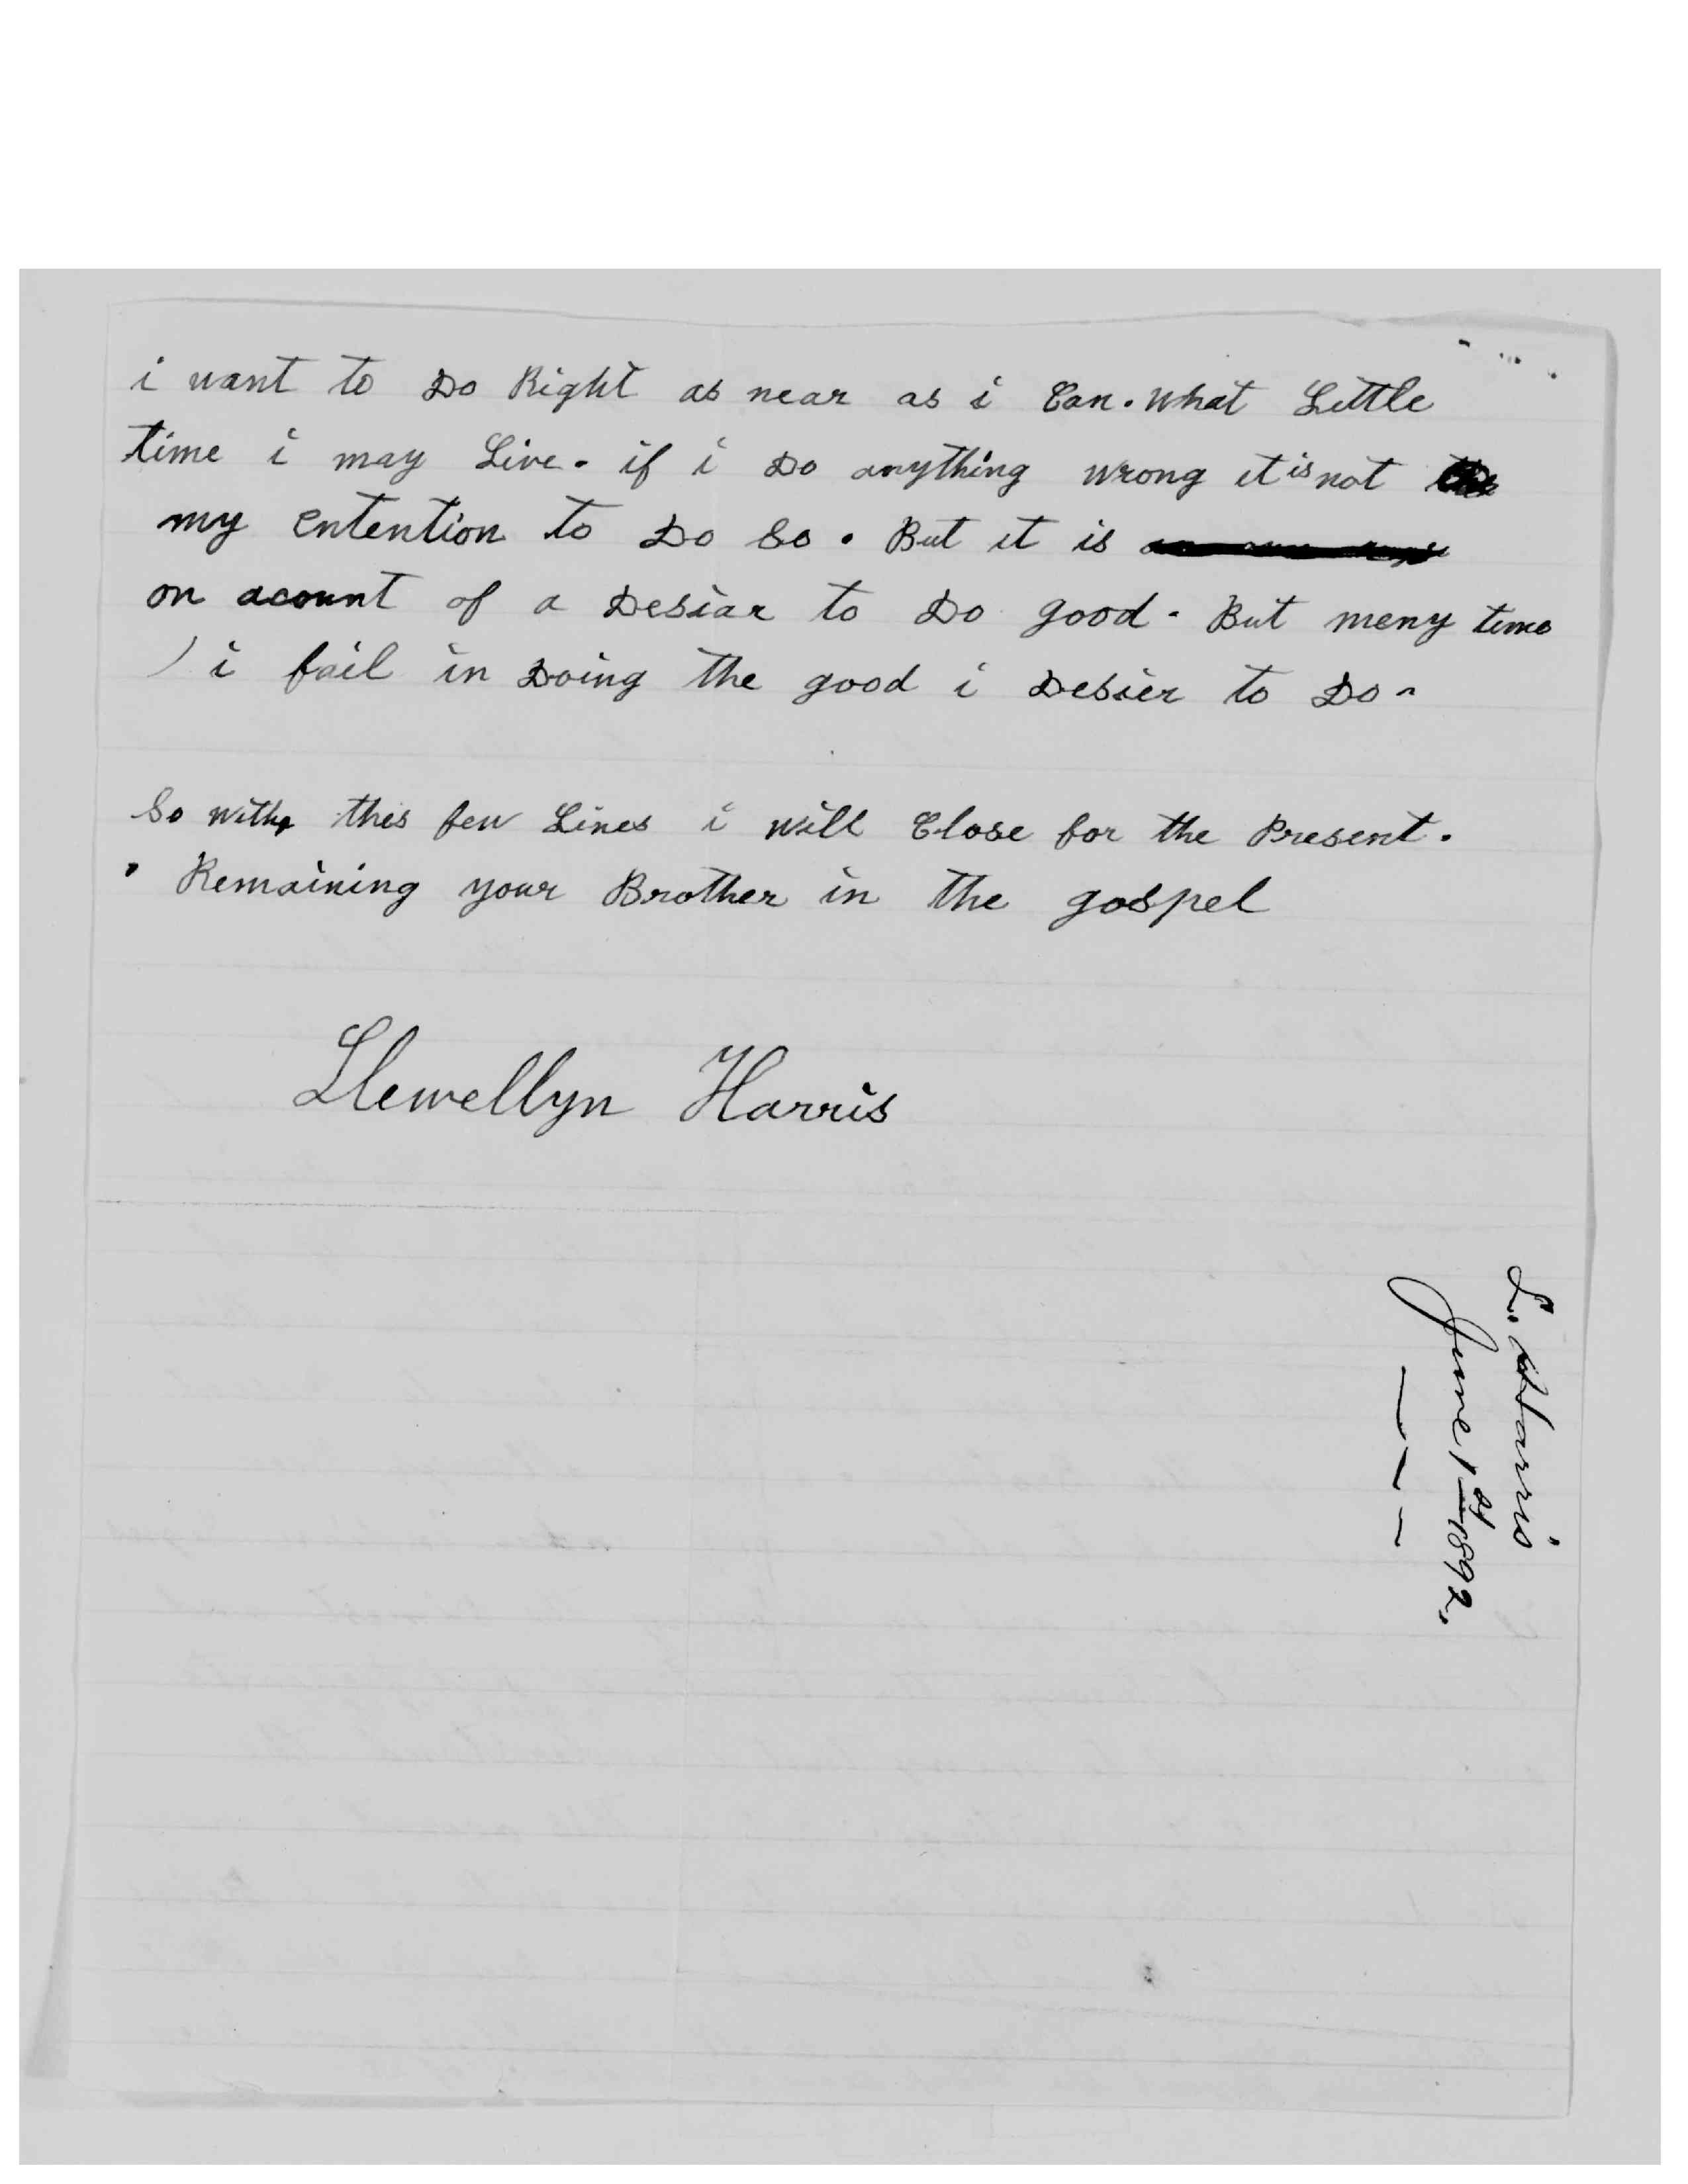 i want to Do Right as near as i Can. What Little
time i may Live. if i Do anything wrong it is not
my entention to Do So. But it is
on acount of a Desiar to Do good. But meny time
i fail in Doing the good i Desier to Do.
So with this few Lines i will Close for the Present.
Remaining your Brother in the gospel
Llewellyn Harris
L. Harris
June 1st 1892.